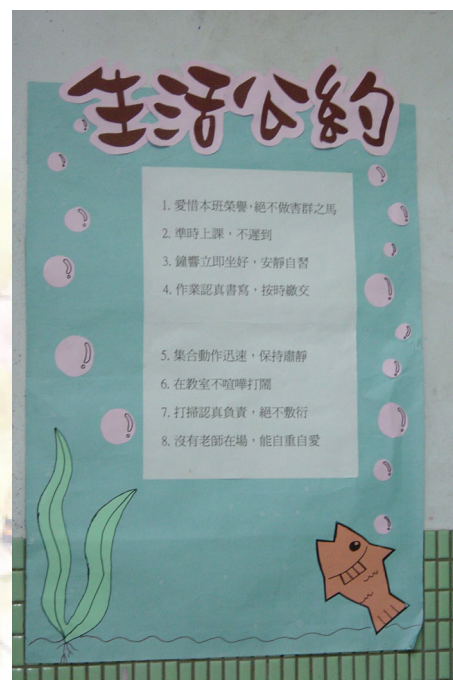 生活公約
1. 愛惜本班榮譽，絕不做害群之馬
2. 準時上課，不遲到
3. 鐘響立即坐好，安靜自習
4. 作業認真書寫，按時繳交
5. 集合動作迅速，保持肅靜
6. 在教室不喧嘩打鬧
7. 打掃認真負責，絕不敷衍
8. 沒有老師在場，能自重自愛